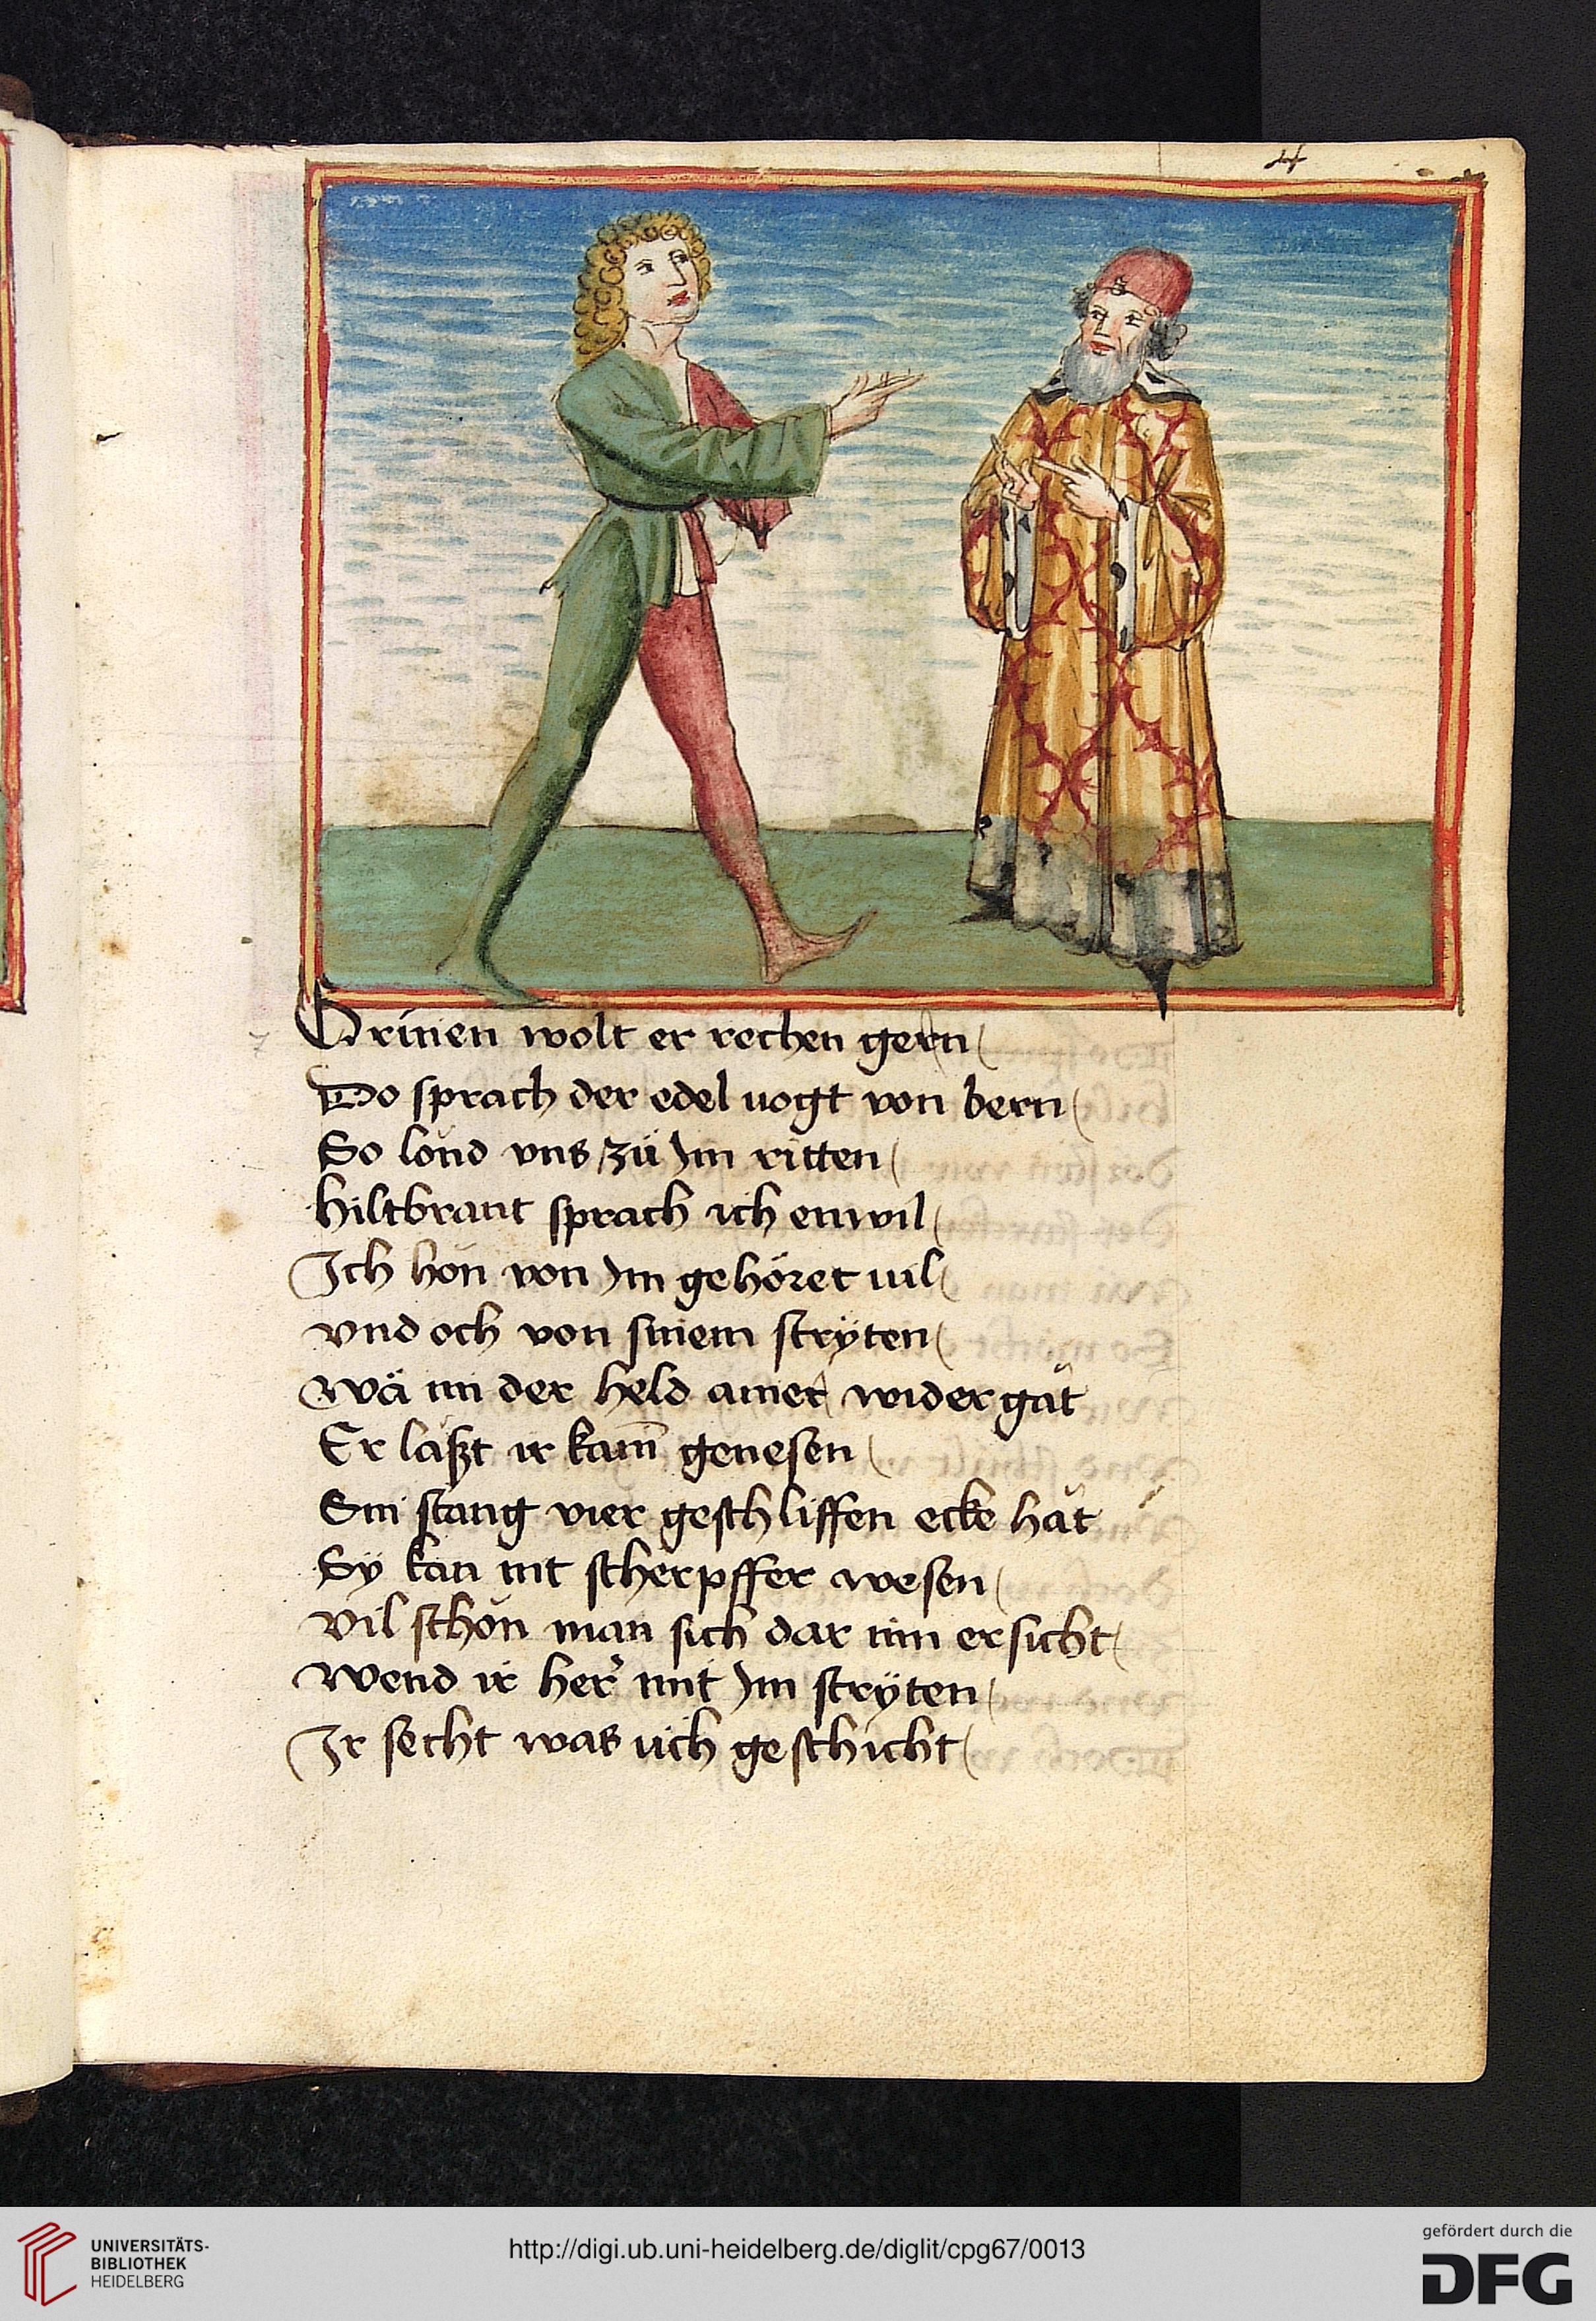 4
Grinen wolt er rechen gern
Do sprach der edel uogt von bern
So lōnd vns zü Im ritten
Hiltbrant sprach ich enwil
Ich hǒn von Im gehöret uil
vnd och von sinem stryͤten
Wä im der held ainer wider gǎt
Er lǎßt ir kam̄ genesen
Sin stang vier geschliffen ecke hǎt
Sÿ kan nit scherpffer wesen
Vil schǒn man sich dar inn ersicht
Wend ir her' mit Im strÿten
Ir secht was üch geschicht
UNIVERSITÄTS-
BIBLIOTHEK
HEIDELBERG
http://digi.ub.uni-heidelberg.de/diglit/cpg67/0013
gefördert durch die
DFG